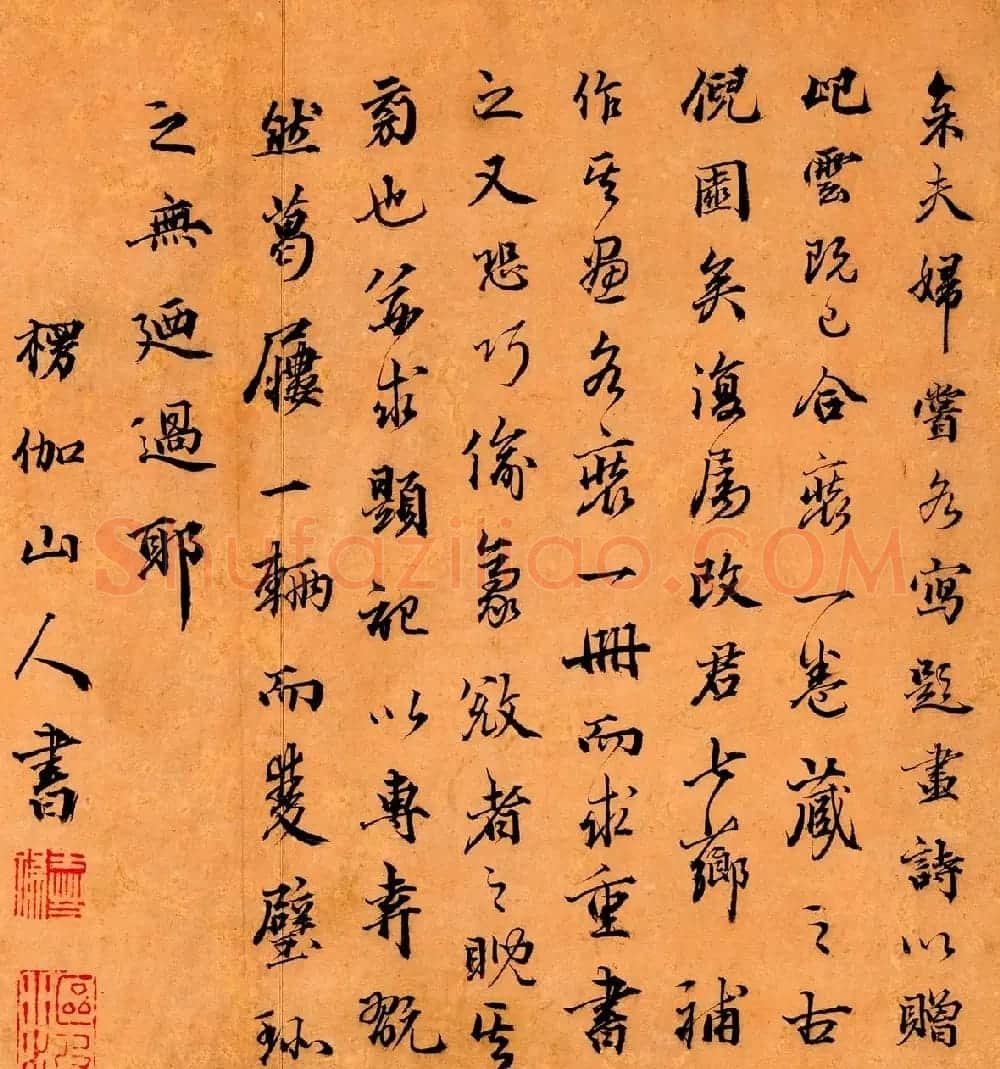 余夫婦嘗各寫題畫詩以贈
屺雲既已合裝一卷藏之古
倪園矣復屬改君七薌補
作其畫各裝一冊而求重書
之又恐巧偷豪奪者之睨其
旁也并求顯記以專弆翫
然葛屨一輛而雙璧珎
之無廼過耶
楞伽山人書
Shufaziliao.COM